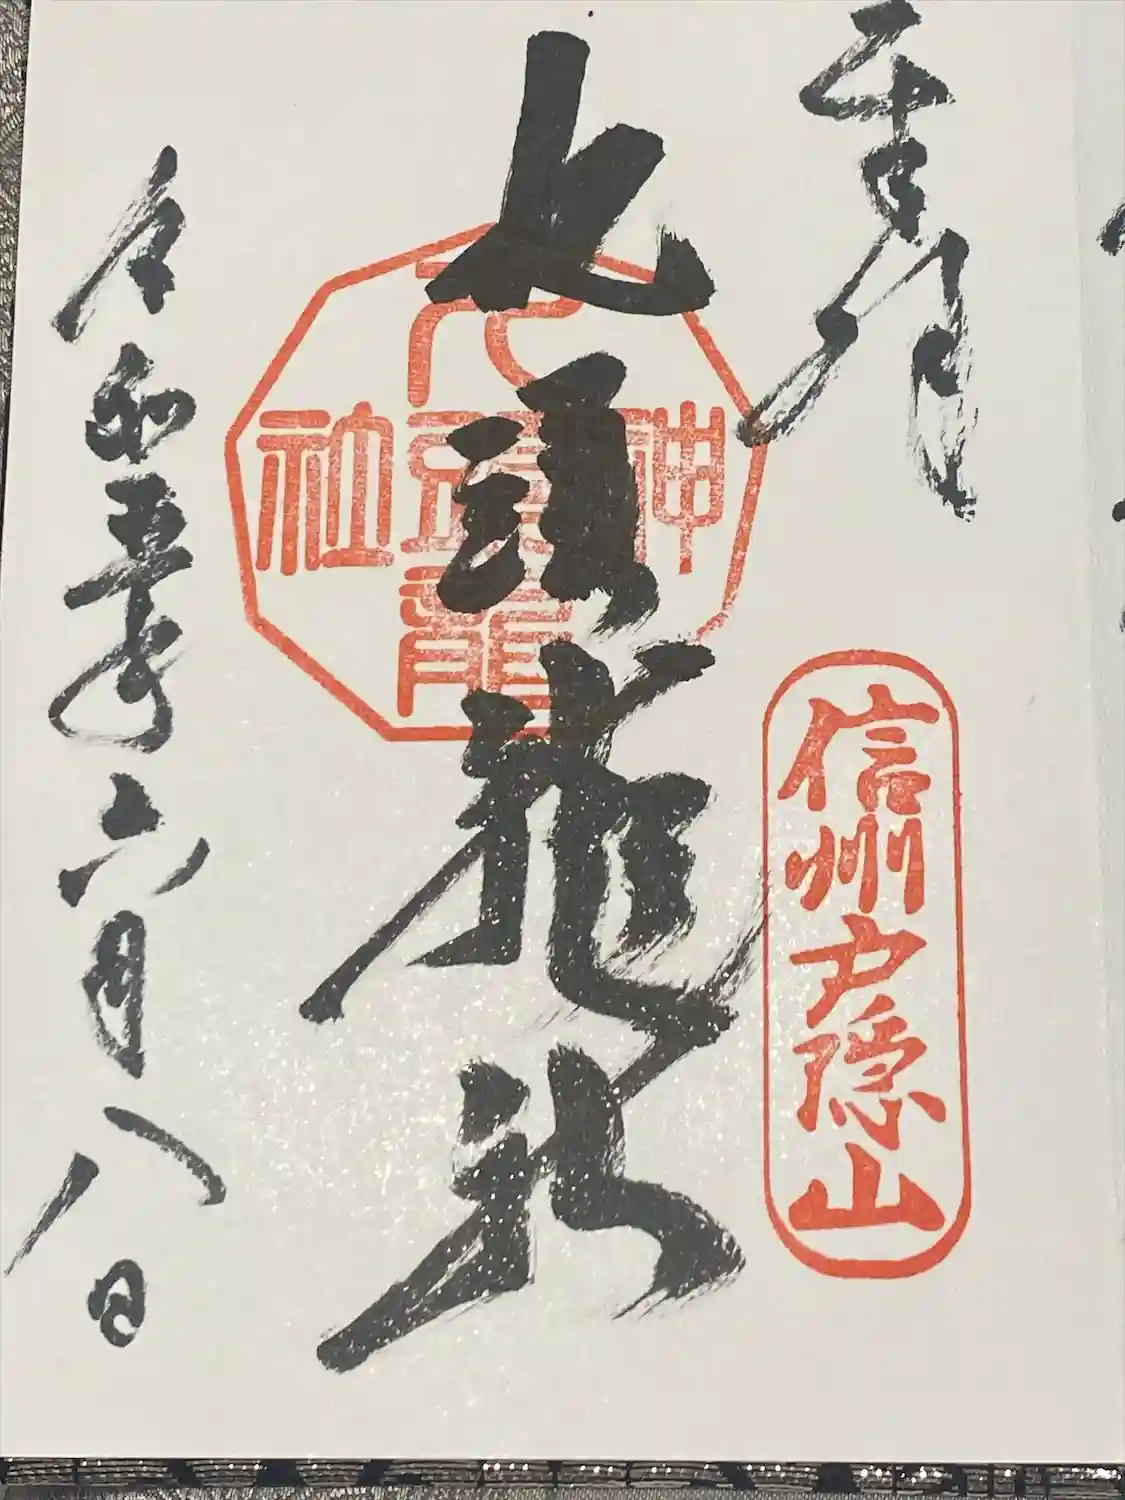 奉拝
信州戸隠山
九頭龍社
九頭龍
神社
令和五年六月八日